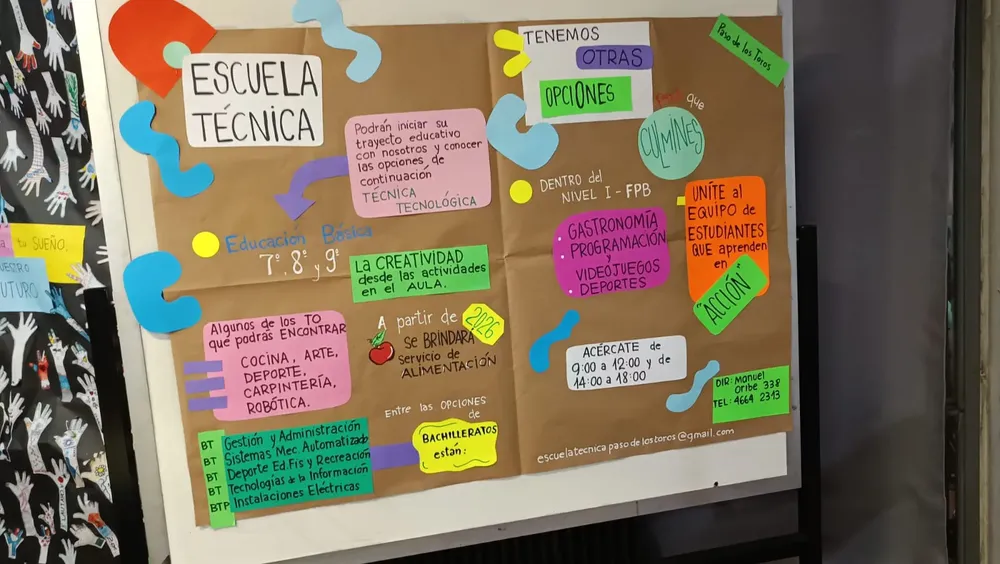 ESCUELA
TÉCNICA
Podrán iniciar su
trayecto educativo
con nosotros y conocer
las opciones de
continuación
TÉCNICA
TECNOLÓGICA
Educación Básica
7º, 8º y 9º
La CREATIVIDAD
desde las actividades
en el AULA.
Algunos de los TO
que podrás ENCONTRAR
COCINA, ARTE,
DEPORTE,
CARPINTERÍA,
ROBÓTICA.
A partir de
2026
se BRINDARÁ
servicio de
ALIMENTACIÓN
Entre las OPCIONES
de
BACHILLERATOS
están:
BT Gestión y Administración
BT Sistemas Mec. Automatizado
BT Deporte Ed.Fís y Recreación
BT Tecnologías de la Información
BTP Instalaciones Eléctricas
TENEMOS
OTRAS
OPCIONES
Paso de los Toros
que
CULMINES
DENTRO del
NIVEL I - FPB
GASTRONOMÍA
PROGRAMACIÓN
y
VIDEOJUEGOS
DEPORTES
UNITE al
EQUIPO de
ESTUDIANTES
QUE aprenden
en
"ACCIÓN"
ACÉRCATE de
9:00 a 12:00 y de
14:00 a 18:00
DIR: Manuel
Oribe 338
TEL: 4664 2313
escuelatecnicapasodelostoros@gmail.com
a tu SUEÑO.
UTURO